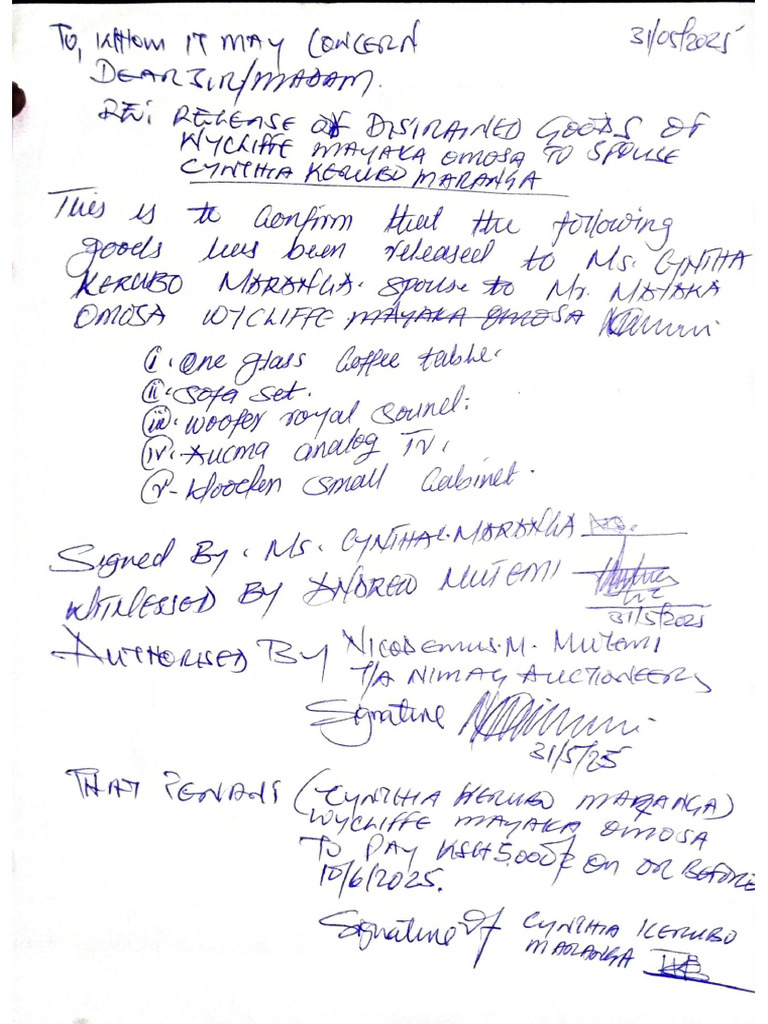 TO, WHOM IT MAY CONCERN
31/05/2025
DEAR SIR/MADAM.
RE: RELEASE OF DISTRAINED GOODS OF
WYCLIFFE MAYAKA OMOSA TO SPOUSE
CYNTHIA KERUBO MARANGA
This is to confirm that the following
goods has been released to Ms. CYNTHA
KERUBO MARANGA. spouse to Mr. MAYAKA
OMOSA WYCLIFFE MAYAKA OMOSA
(i). One glass Coffee table.
(ii). Sofa set.
(iii). Woofer royal Sound.
(iv). Aucma analog TV.
(v)- Wooden small Cabinet.
Signed By. Ms. CYNTHA K. MARANGA
WITNESSED BY ANDREW MUTEMI
31/5/2025
AUTHORISED BY NICODEMUS. M. MUTEMI
T/A NIMAG AUCTIONEERS
Signature
31/5/25
THAT TENANT (CYNTHIA KERUBO MARANGA)
WYCLIFFE MAYAKA OMOSA
TO PAY KSH 5,000/= ON OR BEFORE
10/6/2025.
Signature of CYNTHIA KERUBO
MARANGA